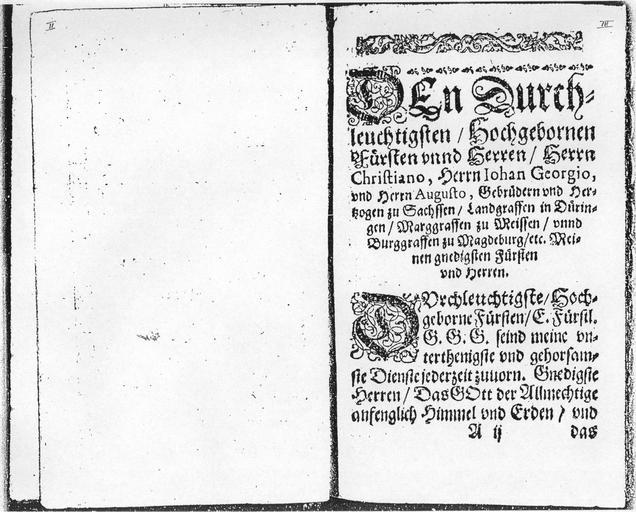 II
III
DEn Durch-
leuchtigsten / Hochgebornen
Fürsten vnnd Herren / Herrn
Christiano, Herrn Iohan Georgio,
vnd Herrn Augusto, Gebrüdern vnd Her-
tzogen zu Sachssen / Landgraffen in Dürin-
gen / Marggraffen zu Meissen / vnnd
Burggraffen zu Magdeburg / etc. Mei-
nen gnedigsten Fürsten
vnd Herren.
DVrchleuchtigste / Hoch-
geborne Fürsten / E. Fürstl.
G. G. G. seind meine vn-
terthenigste vnd gehorsam-
ste Dienste jederzeit zuuorn. Gnedigste
Herren / Das GOtt der Allmechtige
anfenglich Himmel vnd Erden / vnd
A ij das